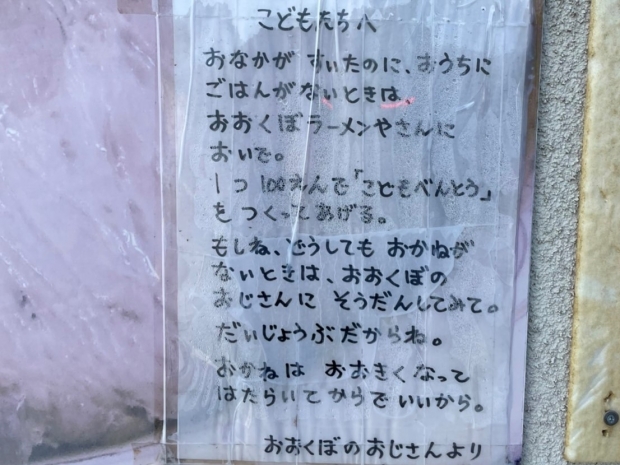 こどもたちへ
おなかが すいたのに、おうちに
ごはんがないときは、
おおくぼラーメンやさんに
おいで。
1つ 100えんで「こどもべんとう」
をつくってあげる。
もしね、どうしても おかねが
ないときは、おおくぼの
おじさんに そうだんしてみて。
だいじょうぶだからね。
おかねは おおきくなって
はたらいてからでいいから。
おおくぼのおじさんより